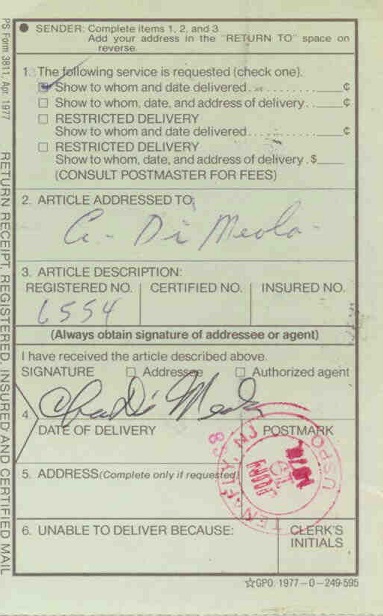 ● SENDER: Complete items 1, 2, and 3.
Add your address in the "RETURN TO" space on
reverse.
1. The following service is requested (check one).
☑ Show to whom and date delivered............ ___¢
☐ Show to whom, date, and address of delivery.... ___¢
☐ RESTRICTED DELIVERY
Show to whom and date delivered............ ___¢
☐ RESTRICTED DELIVERY
Show to whom, date, and address of delivery. $___
(CONSULT POSTMASTER FOR FEES)
2. ARTICLE ADDRESSED TO:
Di Meola
3. ARTICLE DESCRIPTION:
REGISTERED NO. CERTIFIED NO. INSURED NO.
6554
(Always obtain signature of addressee or agent)
I have received the article described above.
SIGNATURE ☐ Addressee ☐ Authorized agent
4.
Di Meola
DATE OF DELIVERY POSTMARK
5. ADDRESS (Complete only if requested)
6. UNABLE TO DELIVER BECAUSE: CLERK'S
INITIALS
☆GPO: 1977-O-249-595
PS Form 3811, Apr. 1977
RETURN RECEIPT, REGISTERED, INSURED AND CERTIFIED MAIL
TENAFLY, NJ
USPO